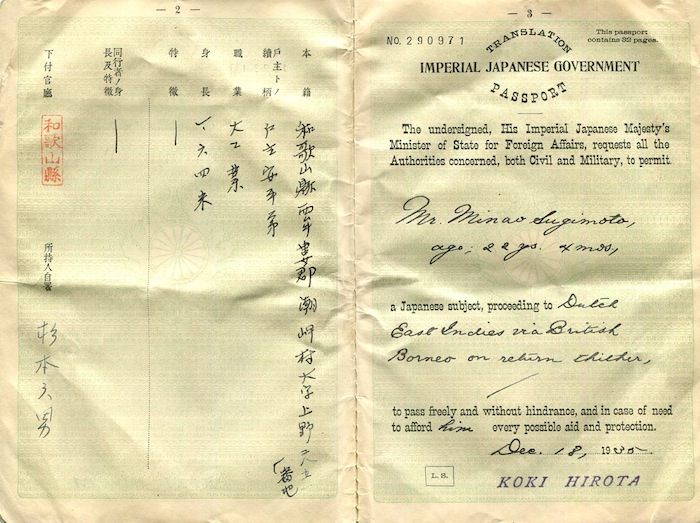 — 2 —
本籍
和歌山縣西牟婁郡潮岬村大字上野
番地
戸主トノ續柄
戸主安平弟
職業
大工業
身長
一、六四米
特徴
同行者ノ身長及特徴
下付官廳
和歌山縣
所持人自署
杉本
男
— 3 —
NO. 290971
This passport
contains 32 pages.
TRANSLATION
IMPERIAL JAPANESE GOVERNMENT
PASSPORT
The undersigned, His Imperial Japanese Majesty's
Minister of State for Foreign Affairs, requests all the
Authorities concerned, both Civil and Military, to permit
Mr. Minao Sugimoto,
age; 22 ys. 4 mos,
a Japanese subject, proceeding to Dutch
East Indies via British
Borneo on return thither,
to pass freely and without hindrance, and in case of need
to afford him every possible aid and protection.
Dec. 18, 1935.
L. S.
KOKI HIROTA